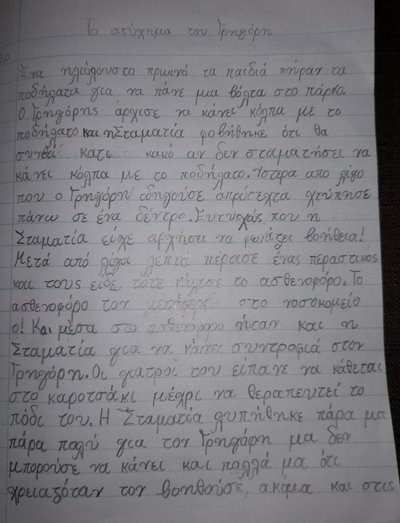 Το ατύχημα του Γρηγόρη
Ένα ηλιόλουστο πρωινό τα παιδιά πήραν τα
ποδήλατα για να πάνε μια βόλτα στο πάρκο.
Ο Γρηγόρης άρχισε να κάνει κόλπα με το
ποδήλατο και η Σταματία φοβήθηκε ότι θα
συμβεί κάτι κακό αν δεν σταματήσει να
κάνει κόλπα με το ποδήλατο. Ύστερα απο λίγο
που ο Γρηγόρη οδηγούσε απρόσεχτα χτύπησε
πάνω σε ένα δέντρο. Ευτυχώς που η
Σταματία είχε αρχήσει να φωνάζει βοήθεια!
Μετά από λίγα λεπτά πέρασε ένας περαστικός
και τους είδε, τότε κάλεσε το ασθενοφόρο. Το
ασθενοφόρο τον μετέφερε στο νοσοκομείο
ο! Και μέσα στο ασθενοφόρο ήταν και η
Σταματία για να κάνει συντροφιά στον
Γρηγόρη. Οι γιατροί του είπανε να κάθεται
στο καροτσάκι μέχρι να θεραπευτεί το
πόδι του. Η Σταματία λυπήθηκε πάρα μα
πάρα πολύ για τον Γρηγόρη μα δεν
μπορούσε να κάνει και πολλά μα ότι
χρειαζόταν τον βοηθούσε, ακόμα και στις